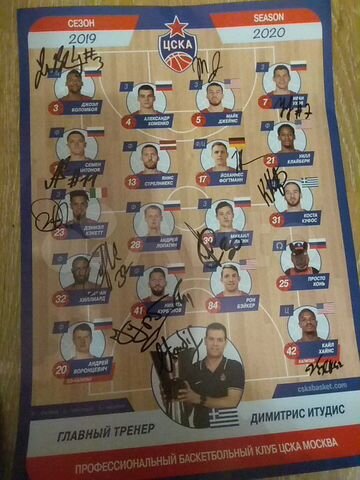 СЕЗОН
2019
ЦСКА
SEASON
2020
3
ДЖОЭЛ
БОЛОМБОЙ
4
АЛЕКСАНДР
ХОМЕНКО
5
МАЙК
ДЖЕЙМС
7
11
СЕМЕН
АНТОНОВ
13
ЯНИС
СТРЕЛНИЕКС
17
ЙОХАННЕС
ФОГТМАНН
21
УИЛЛ
КЛАЙБЕРН
23
ДЭНИЭЛ
ХЭКЕТТ
28
АНДРЕЙ
ЛОПАТИН
МИХАИЛ
31
КОСТА
КУФОС
32
ХИЛЛИАРД
41
НИКИТА
КУРБАНОВ
84
РОН
БЭЙКЕР
25
ПРОСТО
КОНЬ
20
АНДРЕЙ
ВОРОНЦЕВИЧ
42
КАЙЛ
ХАЙНС
cskabasket.com
ГЛАВНЫЙ ТРЕНЕР
ДИМИТРИС ИТУДИС
ПРОФЕССИОНАЛЬНЫЙ БАСКЕТБОЛЬНЫЙ КЛУБ ЦСКА МОСКВА